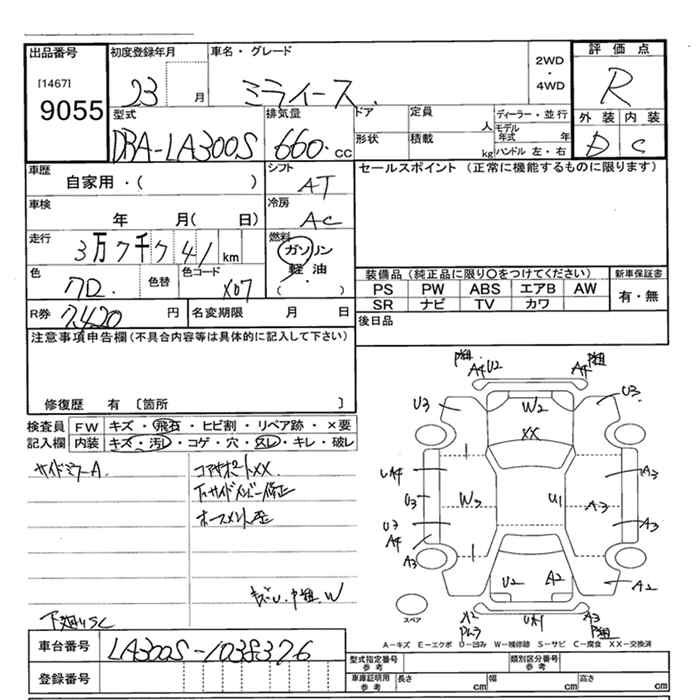 出品番号
[1467]
9055
初度登録年月
23 月
車名・グレード
ミライース
2WD
・
4WD
評価点
R
型式
DBA-LA300S
排気量
660 cc
ドア
形状
定員
人
積載
kg
ディーラー・並行
モデル年式 年
ハンドル 左・右
外装 内装
D C
車歴
自家用・( )
シフト
AT
セールスポイント (正常に機能するものに限ります)
車検
年 月( 日)
冷房
AC
走行
3万7千7 41 km
燃料
ガソリン
軽油
( )
色
色替
色コード
X07
装備品 (純正品に限り○をつけてください)
新車保証書
PS PW ABS エアB AW
SR ナビ TV カワ
有・無
R券
7420 円
名変期限 月 日
後日品
注意事項申告欄(不具合内容等は具体的に記入して下さい)
修復歴 有 〔箇所 〕
検査員記入欄
FW キズ・飛石・ヒビ割・リペア跡・×要
内装 キズ・汚レ・コゲ・穴・スレ・キレ・破レ
サイドミラーA
コアサポートXX
下サイドメンバー修正
ホースメント歪
下廻りSC
A4 U2
A4
U3
W2
XX
U3
UA4
U3
U3
A4
A3
W3
U1
A3
A3
A3
U2
A2
A2
スペア
A2
UA1
A3
A-キズ E-エクボ U-凹み W-補修跡 S-サビ C-腐食 XX-交換済
車台番号
LA300S-1038376
登録番号
型式指定番号
参考
類別区分番号
参考
車庫証明用
参考
長さ cm
幅 cm
高さ cm